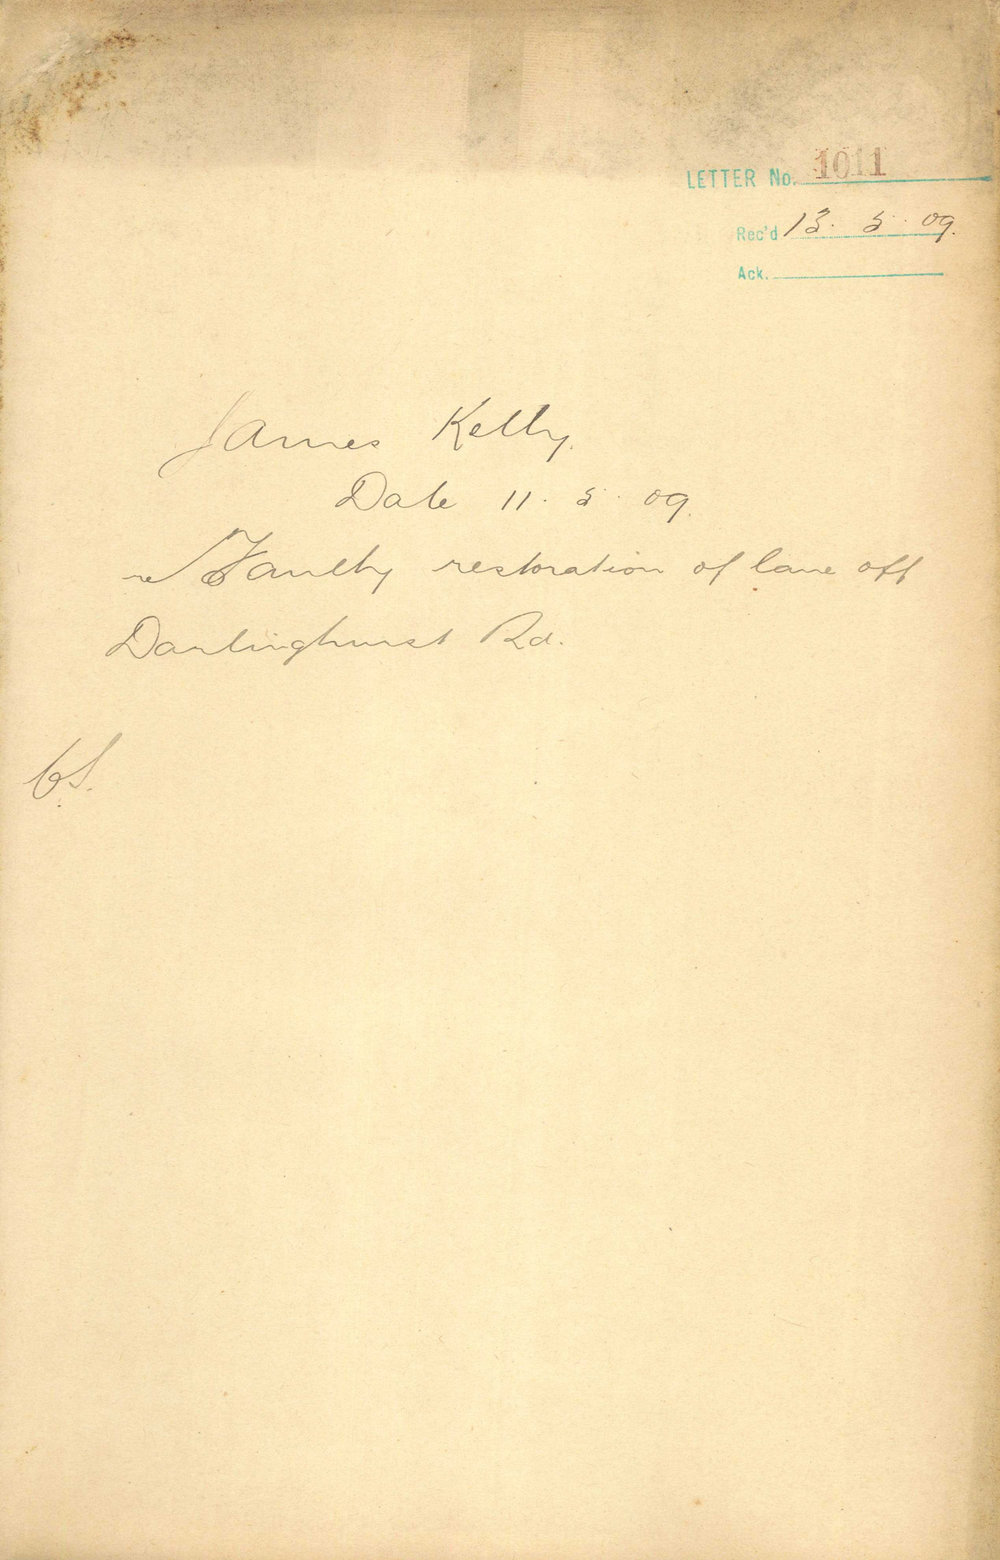 LETTER No. 1011
Rec'd 13. 5. 09.
Ack.
James Kelly.
Date 11. 5. 09.
re Faulty restoration of lane off
Darlinghurst Rd.